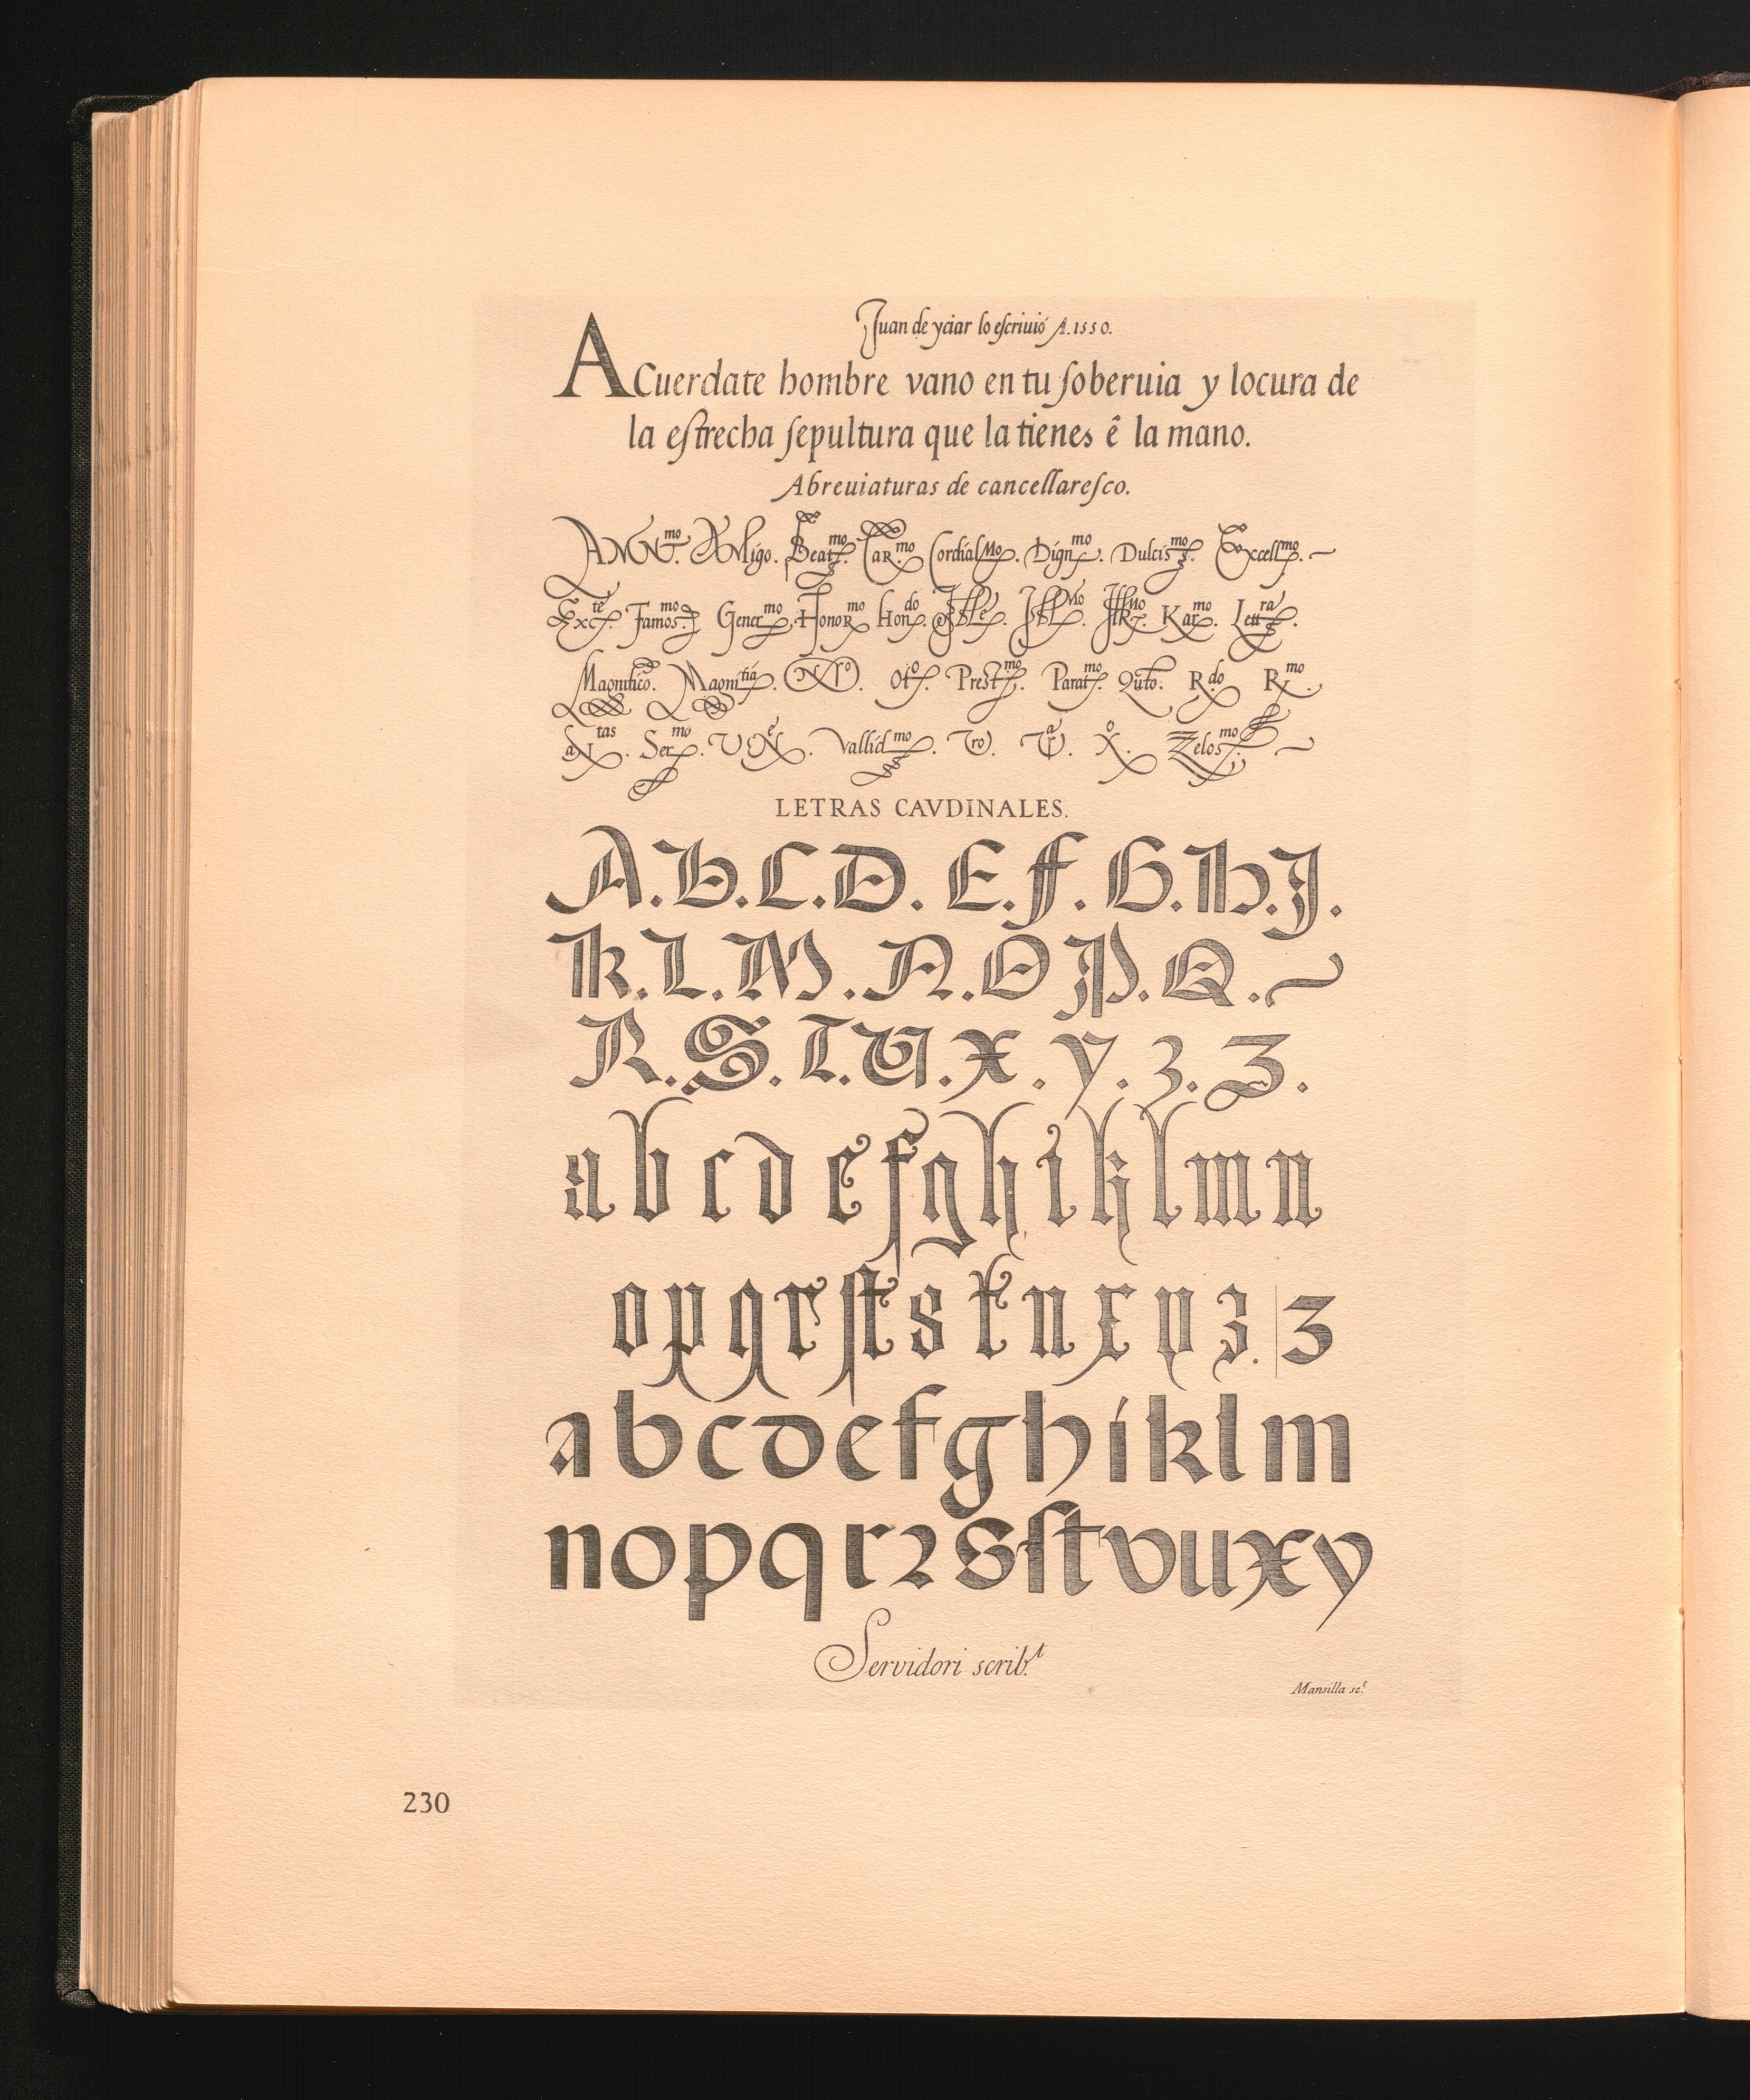 Juan de yciar lo eſcriuió A.1550.
ACuerdate hombre vano en tu ſoberuia y locura de
la eſtrecha ſepultura que la tienes ê la mano.
Abreuiaturas de cancellareſco.
Beat.mo Car.mo Cordial.Mo Dign.mo Dulcis.mo Excell.mo
Exc.te Famos.mo Gener.mo Honor.mo Hon.do Kar.mo Lett.ra
Magnifico. Magni.tia N.ro Ot.o Prest.mo Parat.mo Quto. R.do R.mo
Ser.mo Vallid.mo Vro. X.o Zelos.mo
LETRAS CAVDINALES.
A.B.C.D.E.F.G.H.J.
K.L.M.N.O.P.Q.
R.S.T.V.X.Y.Z.Z.
a b c d e f g h i k l m n
o p q r ſt s t u x y z. z
a b c d e f g h i k l m
n o p q r ꝛ s ſt v u x y
Servidori scrib.t
Mansilla sc.t
230